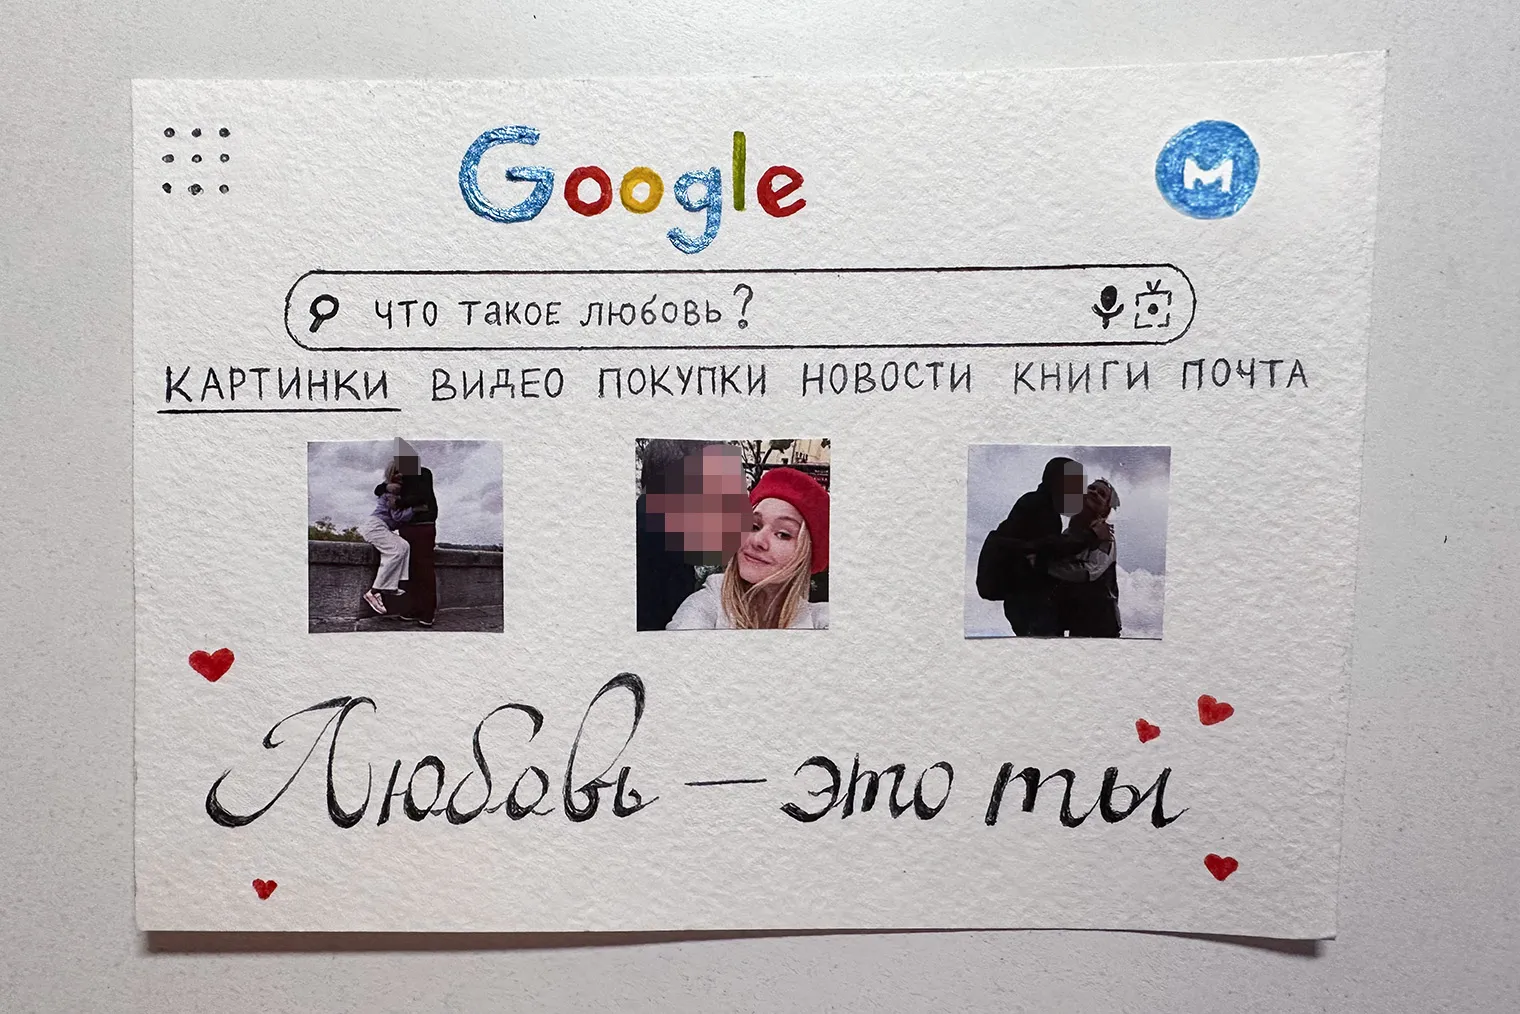 Google
M
что такое любовь?
КАРТИНКИ ВИДЕО ПОКУПКИ НОВОСТИ КНИГИ ПОЧТА
Любовь — это ты